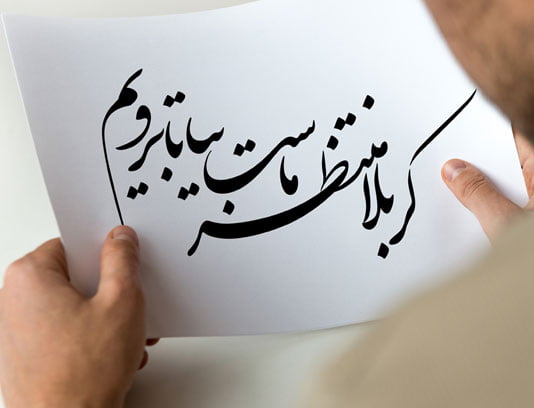 کربلا منتظر ماست بیا تا برویم